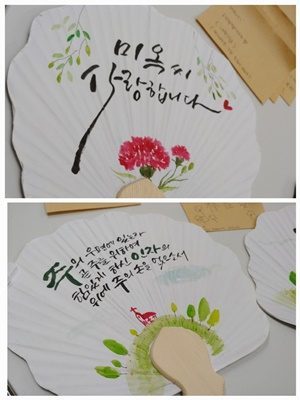 미옥씨
사랑합니다
주의 우편에 있는 자
곧 주를 위하여
힘있게 하신 인자의
위에 주의 손을 얹으소서